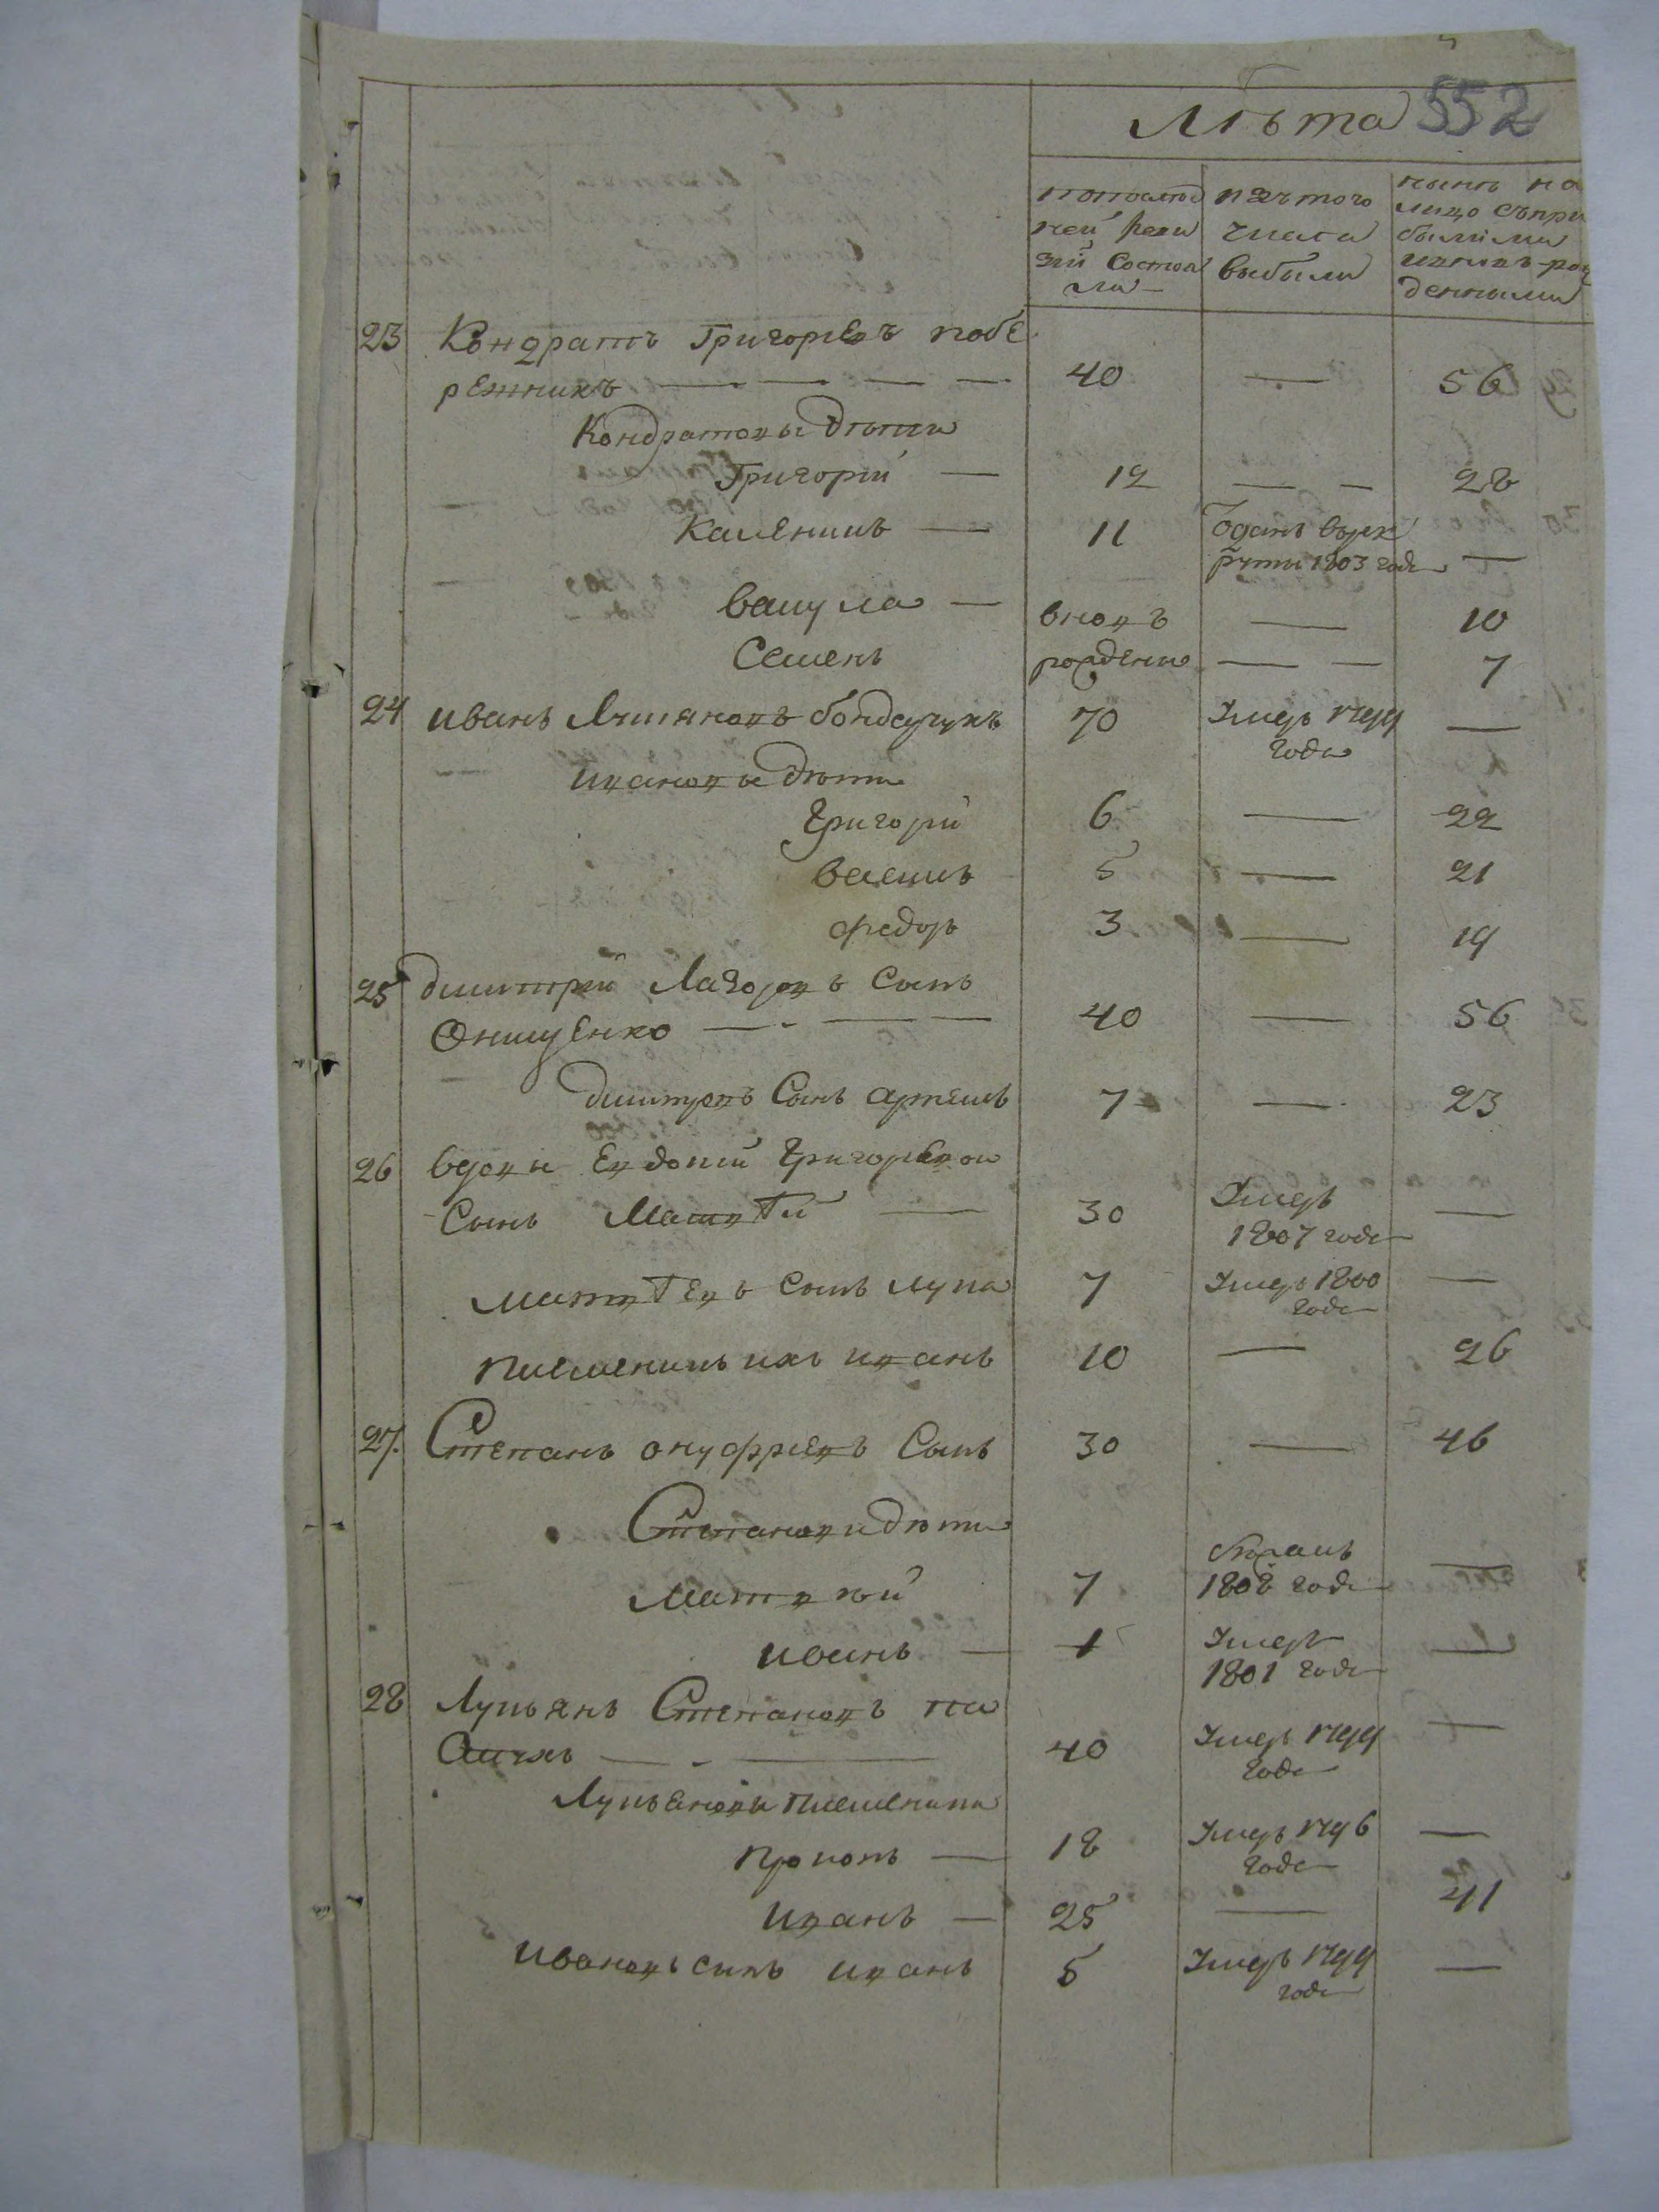 Лѣта 552
попослѣд
ней реви
зіи состоя
ли
изътого
числа
выбыли
нынѣ на
лицо съпри
былыми
ивновь рож
денными
23 Кондратъ Григорьевъ побе
режникъ 40 — 56
Кондратовы дѣти
Григорій — 12 — — 28
Клементій — 11
оданъ врек
руты 1803 года —
Вакула — вновь — 10
Семенъ рожденны — — 7
24 Иванъ бондарчукъ 70 Умеръ 1799 —
года
Ивановы дѣти
Григорій 6 — 22
5 — 21
Федоръ 3 — 19
25 Дмитрей сынъ
Онищенко — 40 — 56
Дмитровъ Сынъ Артемъ 7 — 23
26 вдовы Евдокіи Григорьевой
Сынъ Матвѣй — 30 Умеръ —
1807 года
Матвѣевъ Сынъ лупа 7 Умеръ 1800 —
года
племенникъ ихъ иванъ 10 — 26
27. Степанъ онуфріевъ Сынъ 30 — 46
Степановы дѣти
Матвѣй 7 1808 года —
иванъ — 1 Умеръ —
1801 года
28 Лукьянъ Степановъ 40 Умеръ 1799 —
года
Лукьяновы племеники
Прокопъ — 18 Умеръ 1796 —
года
Иванъ — 25 — 41
Ивановъ сынъ иванъ 5 Умеръ 1799 —
года